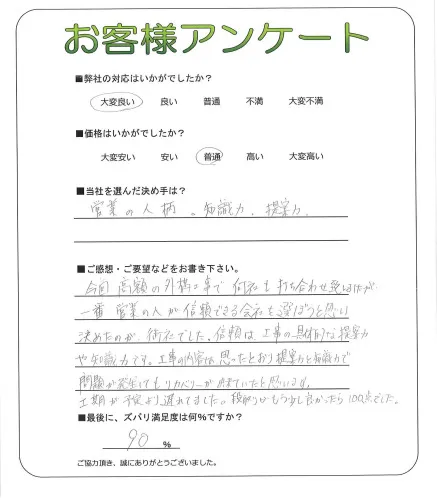 お客様アンケート
■弊社の対応はいかがでしたか?
大変良い 良い 普通 不満 大変不満
■価格はいかがでしたか?
大変安い 安い 普通 高い 大変高い
■当社を選んだ決め手は?
営業の人柄、知識力、提案力
■ご感想・ご要望などをお書き下さい。
今回高額の外構工事で何社も打ち合わせ致しましたが
一番営業の人が信頼できる会社を選ぼうと思い
決めたのが御社でした。信頼は工事の具体的な提案力
や知識力です。工事の内容は思ったとおり提案力と知識力で
問題が発生してもリカバリーが出来ていたと思います。
工期が予定より遅れてました。段取りがもう少し良かったら100点でした。
■最後に、ズバリ満足度は何%ですか?
90 %
ご協力頂き、誠にありがとうございました。